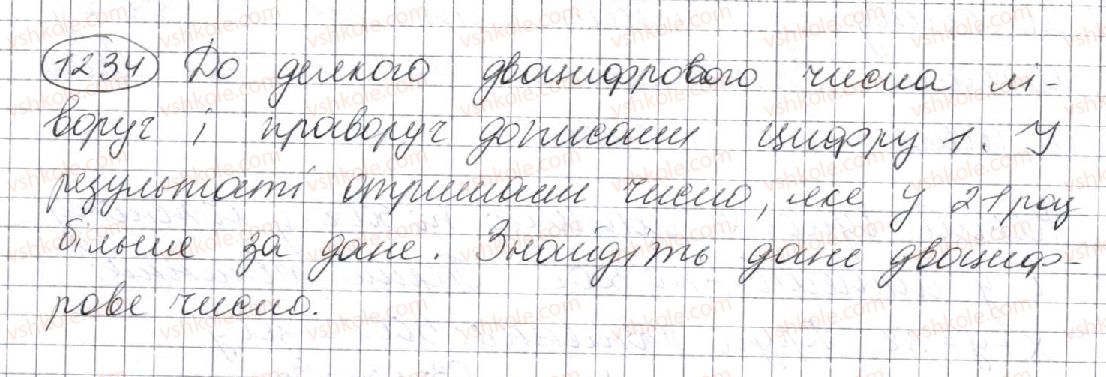 1234 До деякого двоцифрового числа лі-
воруч і праворуч дописали цифру 1. У
результаті отримали число, яке у 21 раз
більше за дане. Знайдіть дане двоциф-
рове число.